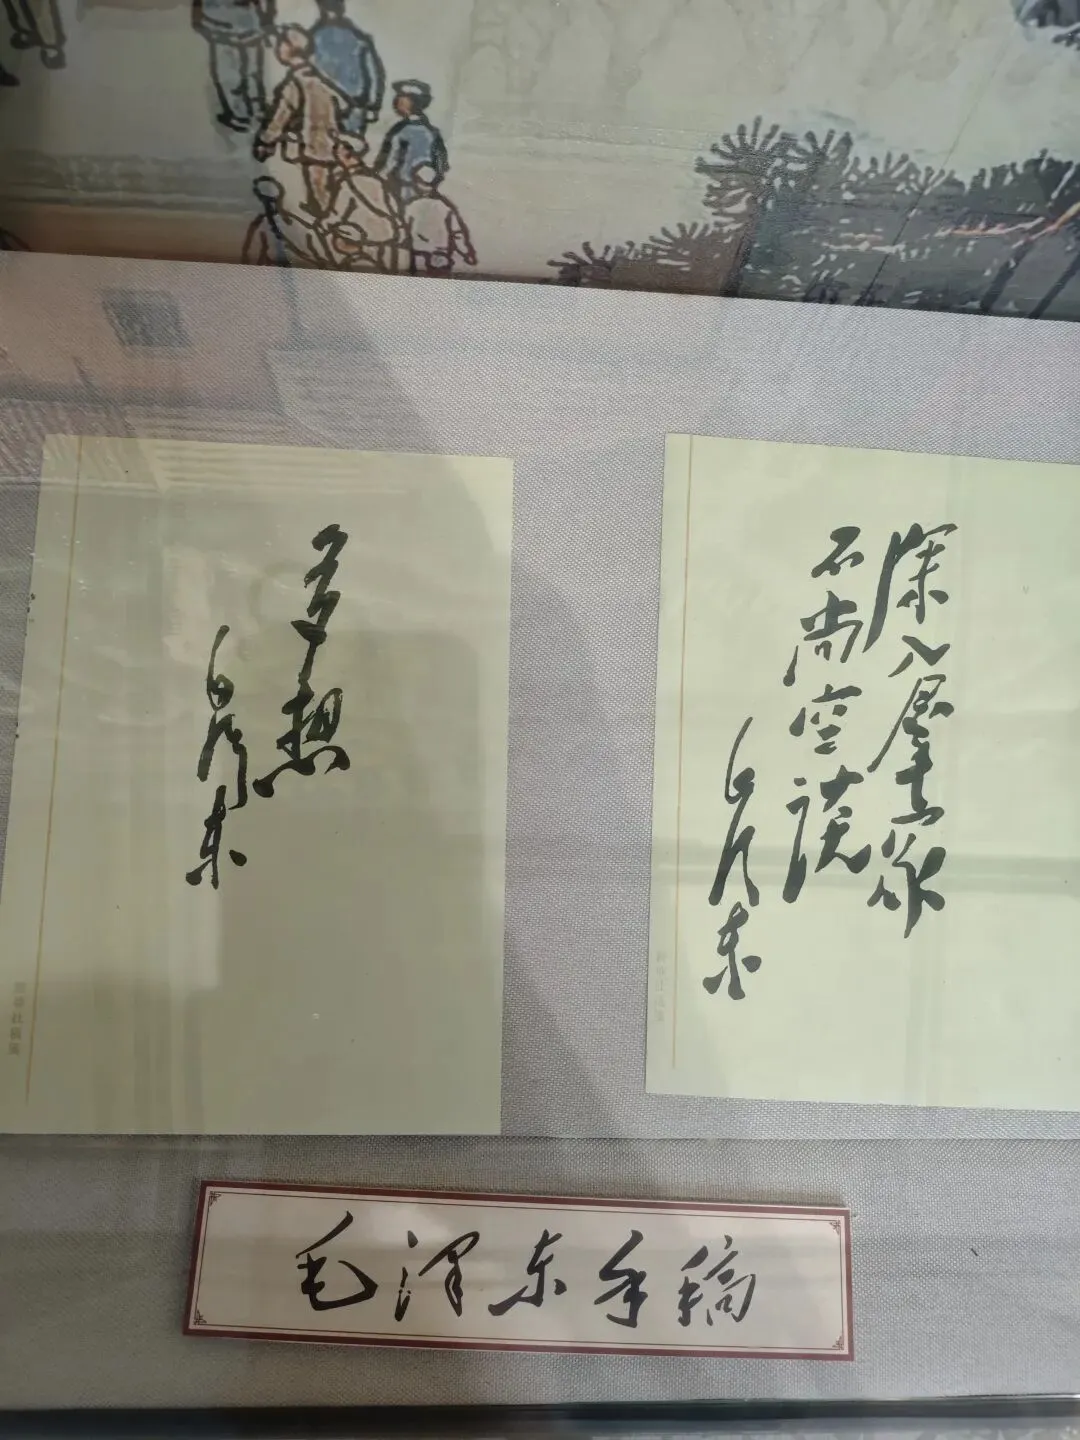 多想
毛泽东
深入群众
不尚空谈
毛泽东
毛泽东手稿